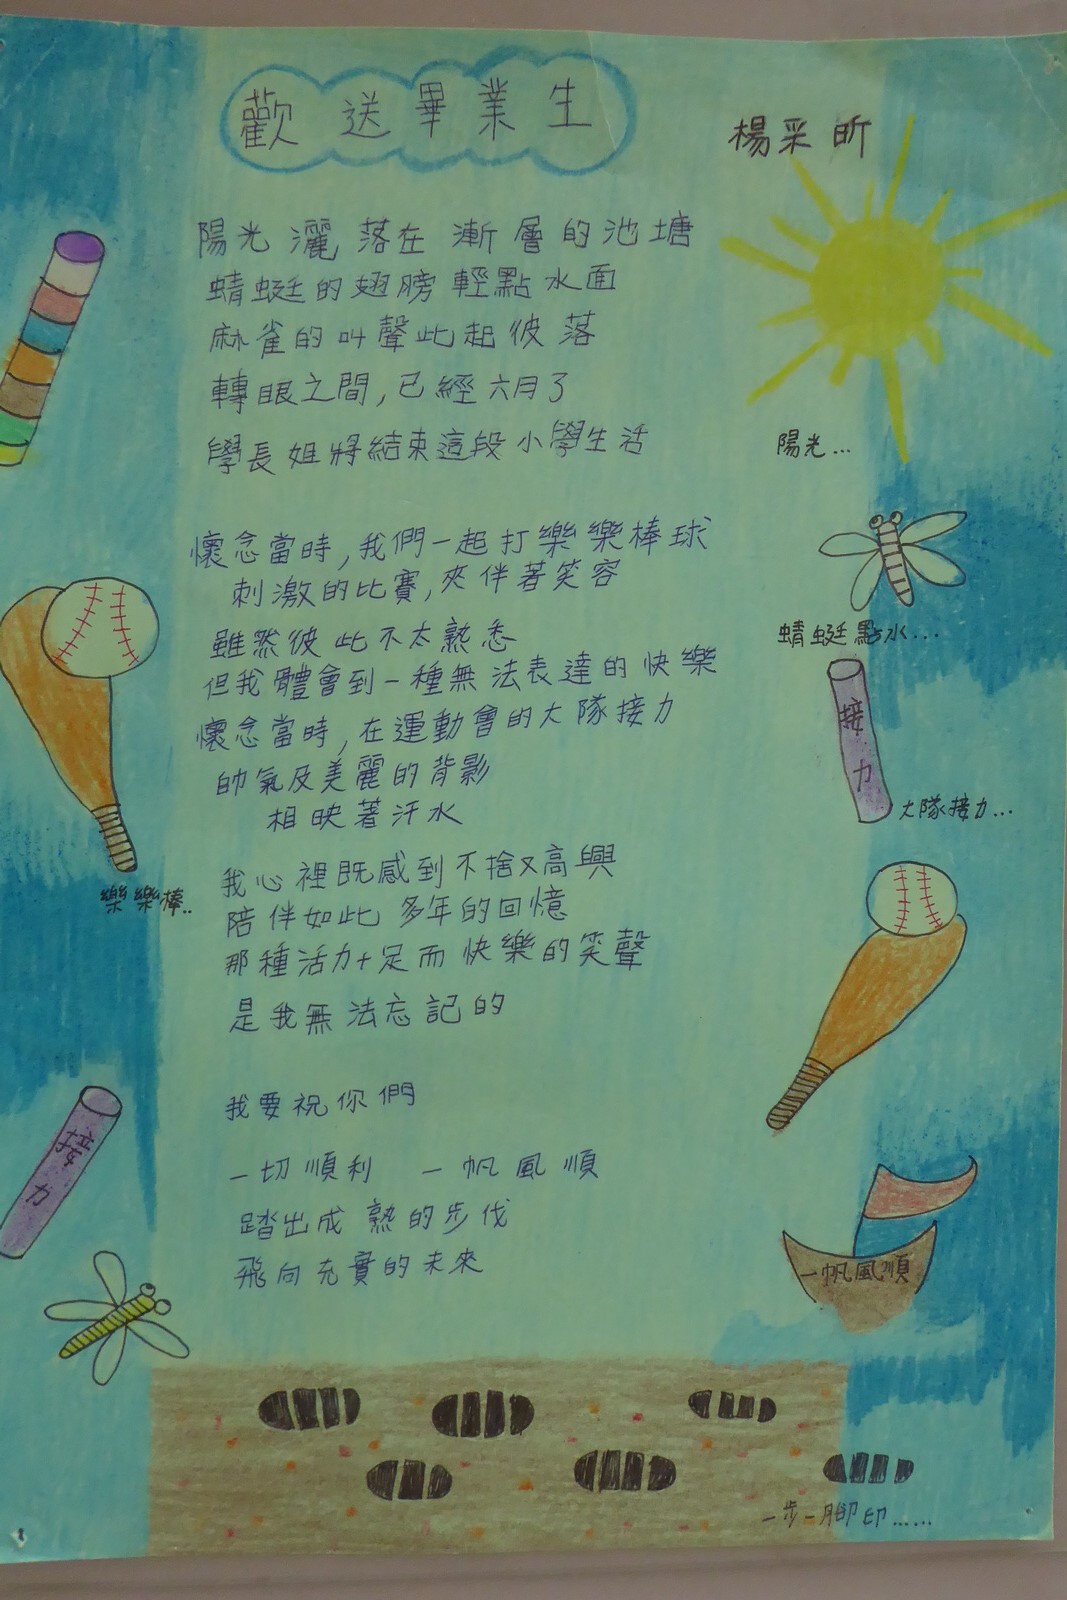 歡送畢業生
楊采昕
陽光灑落在漸層的池塘
蜻蜓的翅膀輕點水面
麻雀的叫聲此起彼落
轉眼之間,已經六月了
學長姐將結束這段小學生活
懷念當時,我們一起打樂樂棒球
刺激的比賽,夾伴著笑容
雖然彼此不太熟悉
但我體會到一種無法表達的快樂
懷念當時,在運動會的大隊接力
帥氣及美麗的背影
相映著汗水
我心裡既感到不捨又高興
陪伴如此多年的回憶
那種活力十足而快樂的笑聲
是我無法忘記的
我要祝你們
一切順利 一帆風順
踏出成熟的步伐
飛向充實的未來
陽光...
蜻蜓點水...
接力
大隊接力...
樂樂棒..
接力
一帆風順
一步一腳印......